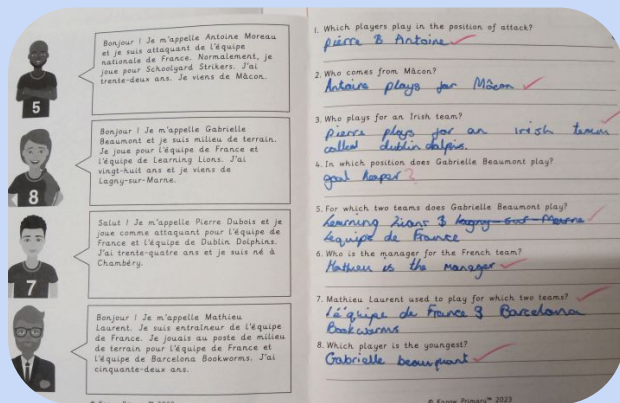 Bonjour ! Je m'appelle Antoine Moreau
et je suis attaquant de l'équipe
nationale de France. Normalement, je
joue pour Schoolyard Strikers. J'ai
trente-deux ans. Je viens de Mâcon.
5
Bonjour ! Je m'appelle Gabrielle
Beaumont et je suis milieu de terrain.
Je joue pour l'équipe de France et
l'équipe de Learning Lions. J'ai
vingt-huit ans et je viens de
Lagny-sur-Marne.
8
Salut ! Je m'appelle Pierre Dubois et je
joue comme attaquant pour l'équipe de
France et l'équipe de Dublin Dolphins.
J'ai trente-quatre ans et je suis né à
Chambéry.
7
Bonjour ! Je m'appelle Mathieu
Laurent. Je suis entraîneur de l'équipe
de France. Je jouais au poste de milieu
de terrain pour l'équipe de France et
l'équipe de Barcelona Bookworms. J'ai
cinquante-deux ans.
1. Which players play in the position of attack?
pierre & Antoine
2. Who comes from Mâcon?
Antoine plays for Mâcon
3. Who plays for an Irish team?
pierre plays for an irish team
called dublin dolpins.
4. In which position does Gabrielle Beaumont play?
goal keeper ?
5. For which two teams does Gabrielle Beaumont play?
Learning Lions & Lagny-sur-Marne
Lequipe de France
6. Who is the manager for the French team?
Mathieu is the manager
7. Mathieu Laurent used to play for which two teams?
L'équipe de France & Barcelona
Bookworms
8. Which player is the youngest?
Gabrielle beaumont
© Know Primary™ 2023